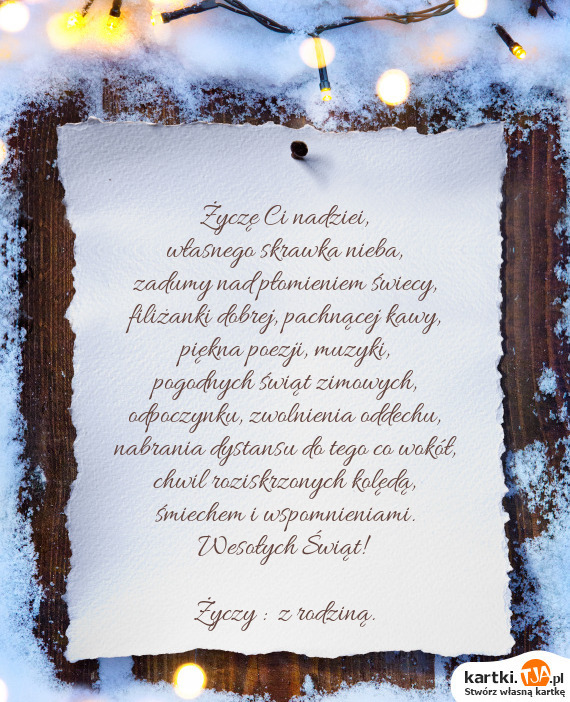 Życzę Ci nadziei,
własnego skrawka nieba,
zadumy nad płomieniem świecy,
filiżanki dobrej, pachnącej kawy,
piękna poezji, muzyki,
pogodnych świąt zimowych,
odpoczynku, zwolnienia oddechu,
nabrania dystansu do tego co wokół,
chwil roziskrzonych kolędą,
śmiechem i wspomnieniami.
Wesołych Świąt!
Życzy : z rodziną.
kartki.TJA.pl
Stwórz własną kartkę